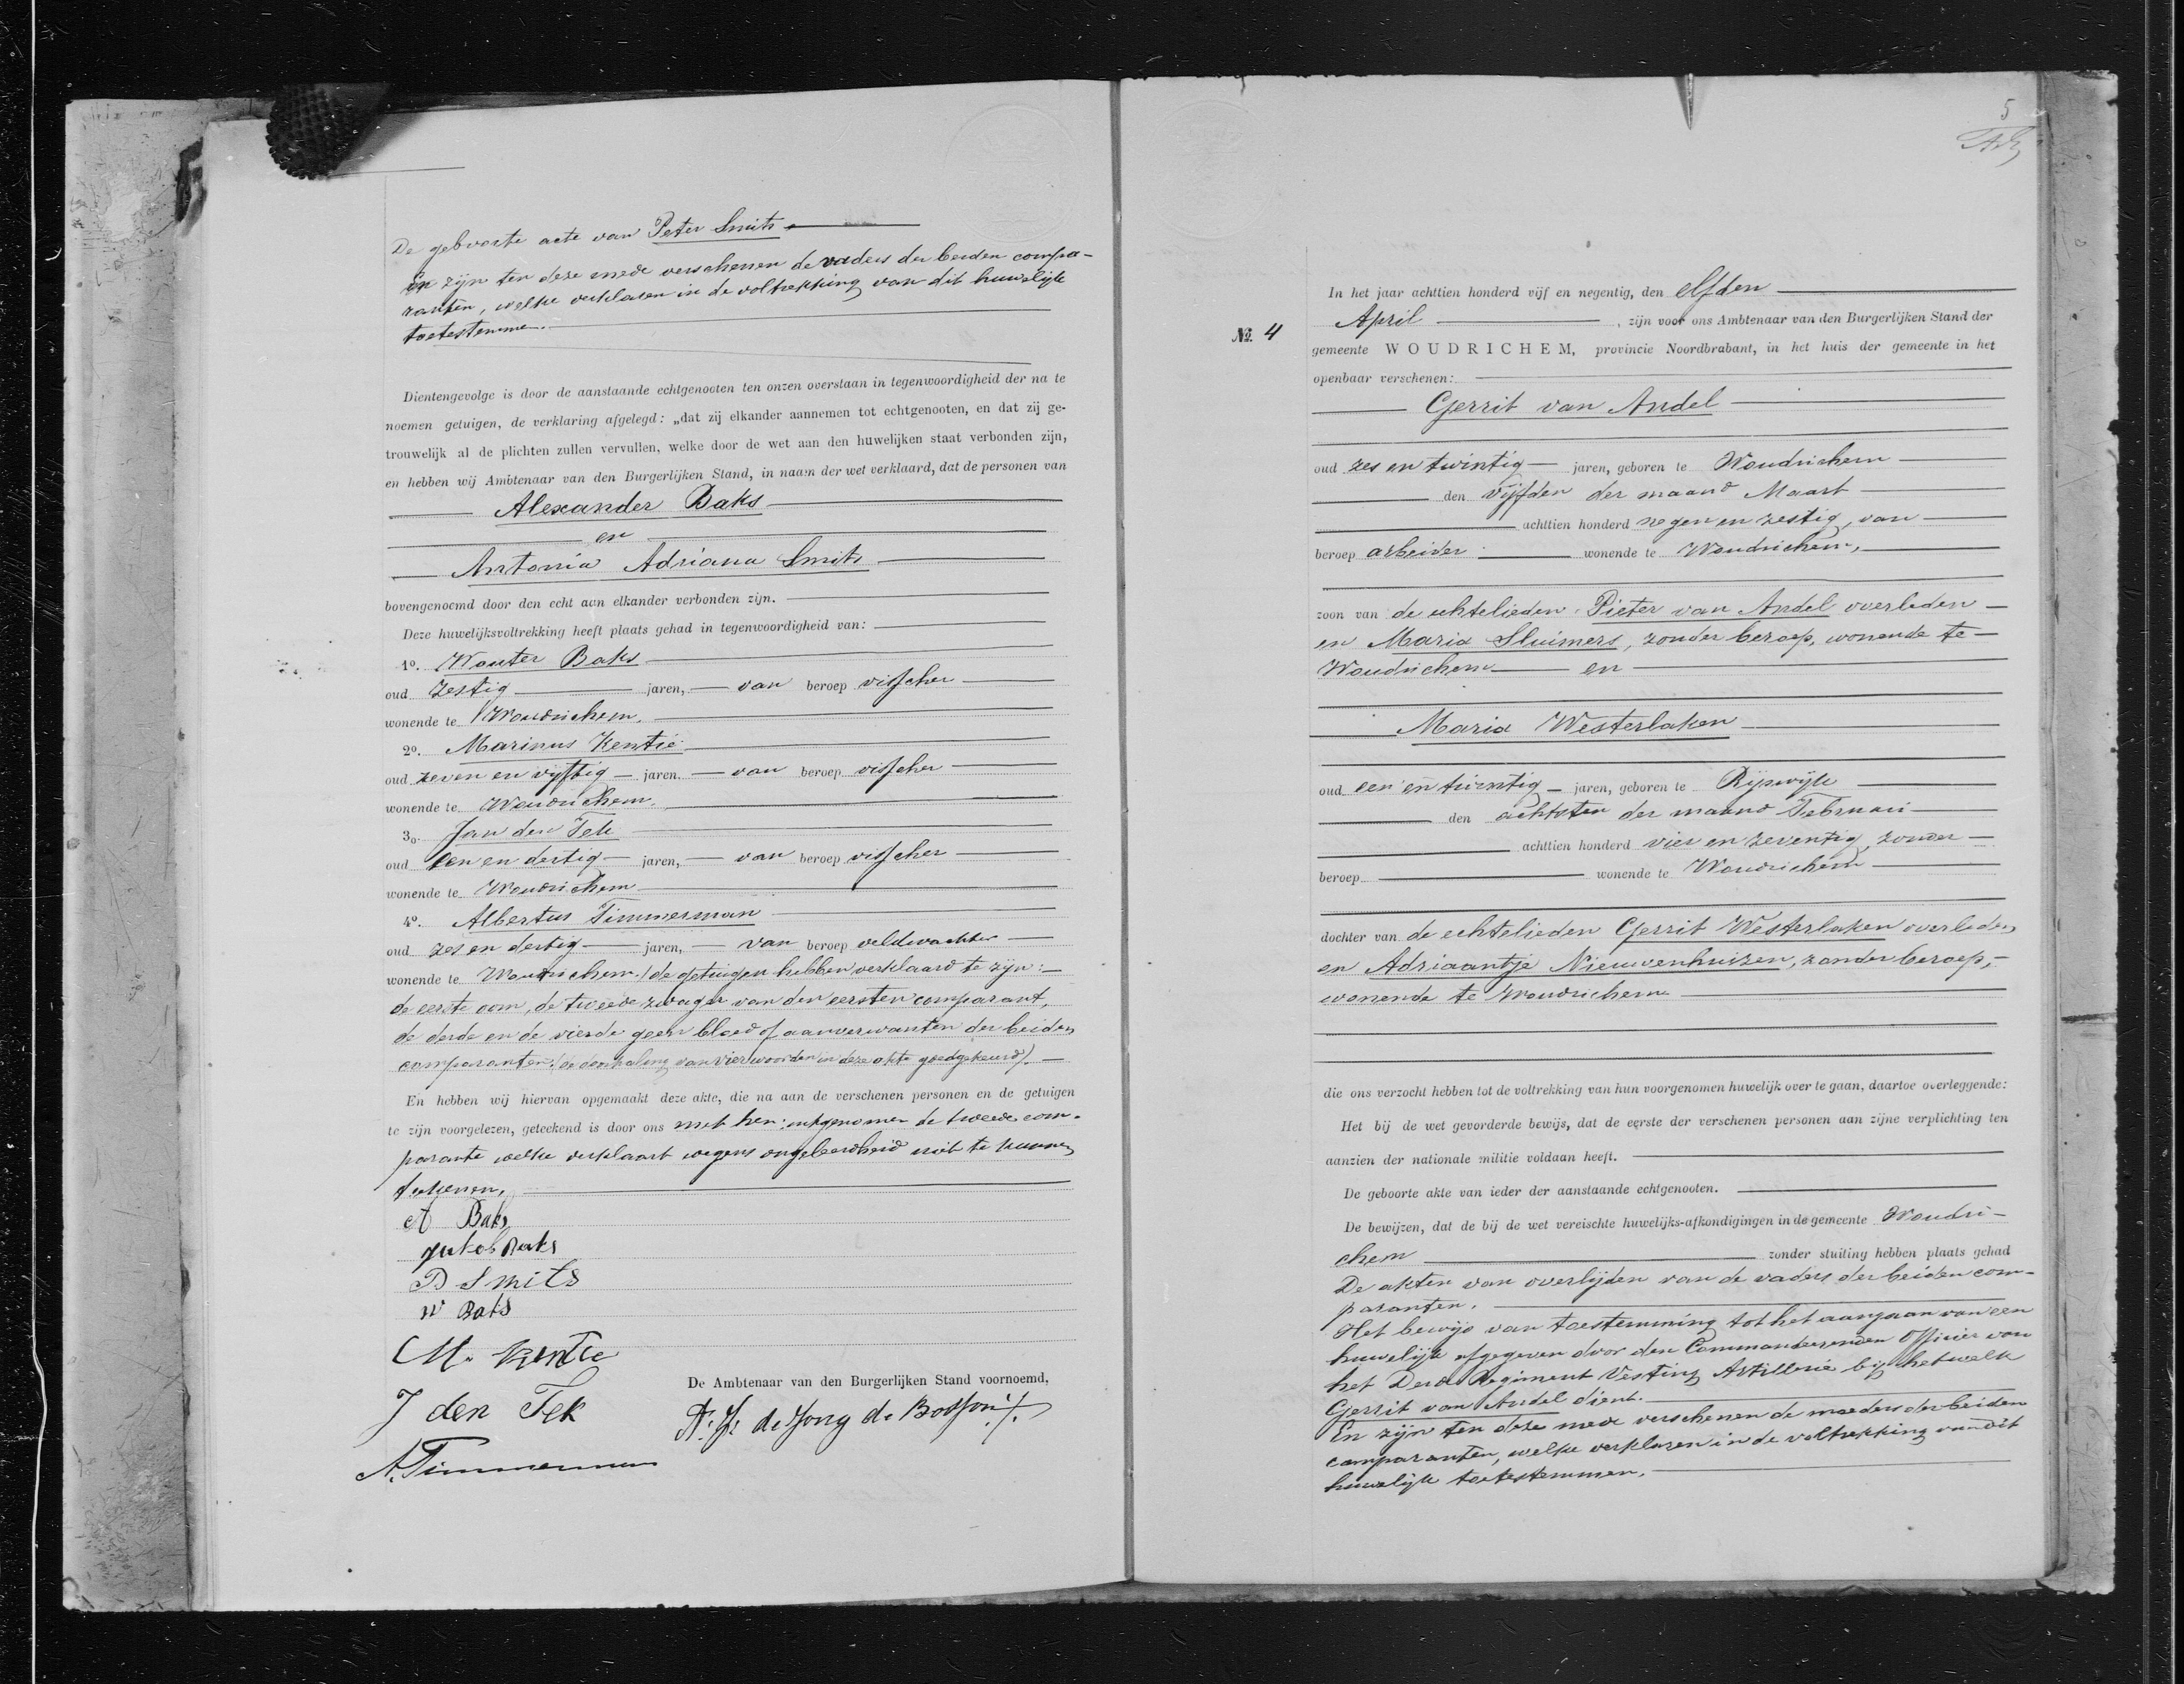 De geboorte acte van Peter Smits
En zijn ten deze mede verschenen de vaders der beiden compa-
ranten, welke verklaren in de voltrekking van dit huwelijk
toetestemme.
Dientengevolge is door de aanstaande echtgenooten ten onzen overstaan in tegenwoordigheid der na te
noemen getuigen, de verklaring afgelegd: „dat zij elkander aannemen tot echtgenooten, en dat zij ge-
trouwelijk al de plichten zullen vervullen, welke door de wet aan den huwelijken staat verbonden zijn,
en hebben wij Ambtenaar van den Burgerlijken Stand, in naam der wet verklaard, dat de personen van
Alexander Baks
en
Antonia Adriana Smits
bovengenoemd door den echt aan elkander verbonden zijn.
Deze huwelijksvoltrekking heeft plaats gehad in tegenwoordigheid van:
1o. Wouter Baks
oud zestig jaren, van beroep visscher
wonende te Woudrichem.
2o. Marinus Kentie
oud zeven en vijftig jaren, van beroep visscher
wonende te Woudrichem.
3o. Jan den Tek
oud een en dertig jaren, van beroep visscher
wonende te Woudrichem
4o. Albertus Timmerman
oud zes en dertig jaren, van beroep veldwachter
wonende te Woudrichem. de getuigen hebben verklaard te zijn:
de eerste oom, de tweede zwager van den eersten comparant,
de derde en de vierde geen bloed of aanverwanten der beiden
comparanten. (de doorhaling van vier woorden in deze akte goedgekeurd).
En hebben wij hiervan opgemaakt deze akte, die na aan de verschenen personen en de getuigen
te zijn voorgelezen, geteekend is door ons met hen: uitgenomen de tweede com-
parante welke verklaart wegens ongeleerdheid niet te kunnen
teekenen.
A Baks
Jakob Baks
P Smits
W Baks
M. Kentie
De Ambtenaar van den Burgerlijken Stand voornoemd,
J den Tek
de Jong de
A. Timmerman
5
In het jaar achttien honderd vijf en negentig, den elfden
April , zijn voor ons Ambtenaar van den Burgerlijken Stand der
No. 4
gemeente WOUDRICHEM, provincie Noordbrabant, in het huis der gemeente in het
openbaar verschenen:
Gerrit van Andel
oud zes en twintig jaren, geboren te Woudrichem
den vijfden der maand Maart
achttien honderd negen en zestig, van
beroep arbeider wonende te Woudrichem,
zoon van de echtelieden Pieter van Andel overleden
en Maria Sluimers, zonder beroep, wonende te
Woudrichem en
Maria Westerlaken
oud een en twintig jaren, geboren te Rijswijk
den achtsten der maand Februari
achttien honderd vier en zeventig, zonder
beroep wonende te Woudrichem
dochter van de echtelieden Gerrit Westerlaken overleden
en Adriaantje Nieuwenhuizen, zonder beroep,
wonende te Woudrichem
die ons verzocht hebben tot de voltrekking van hun voorgenomen huwelijk over te gaan, daartoe overleggende:
Het bij de wet gevorderde bewijs, dat de eerste der verschenen personen aan zijne verplichting ten
aanzien der nationale militie voldaan heeft.
De geboorte akte van ieder der aanstaande echtgenooten.
De bewijzen, dat de bij de wet vereischte huwelijks-afkondigingen in de gemeente Woudri-
chem zonder stuiting hebben plaats gehad
De akten van overlijden van de vaders der beiden com-
paranten.
Het bewijs van toestemming tot het aangaan van een
huwelijk afgegeven door den Commandeerenden Officier van
het Derde Regiment Vesting Artillerie bij hetwelk
Gerrit van Andel dient.
En zijn ten deze mede verschenen de moeders der beiden
comparanten, welke verklaren in de voltrekking van dit
huwelijk toetestemmen.